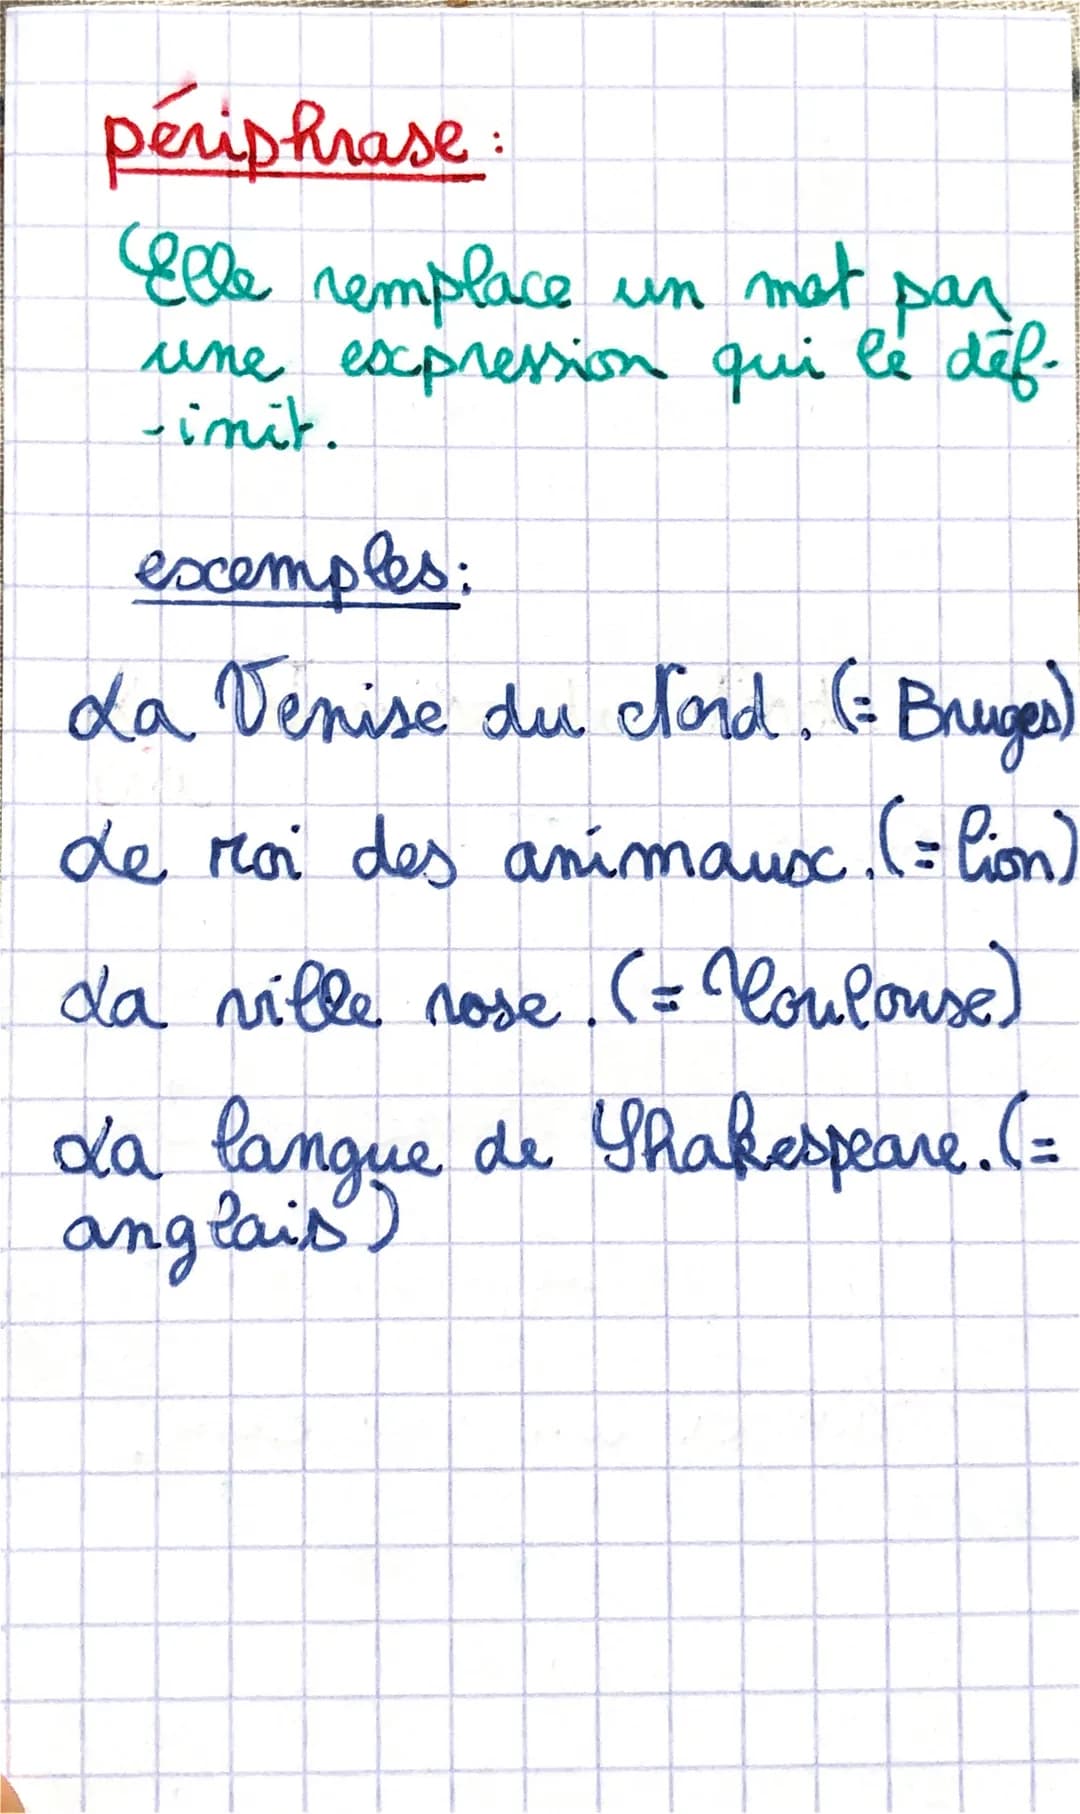 périphrase :
Elle remplace un mot par
une expression qui le déf-
-init.
exemples :
La Venise du Nord. (= Bruges)
Le roi des animaux. (= lion)
La ville rose. (= Toulouse)
La langue de Shakespeare. (=
anglais)